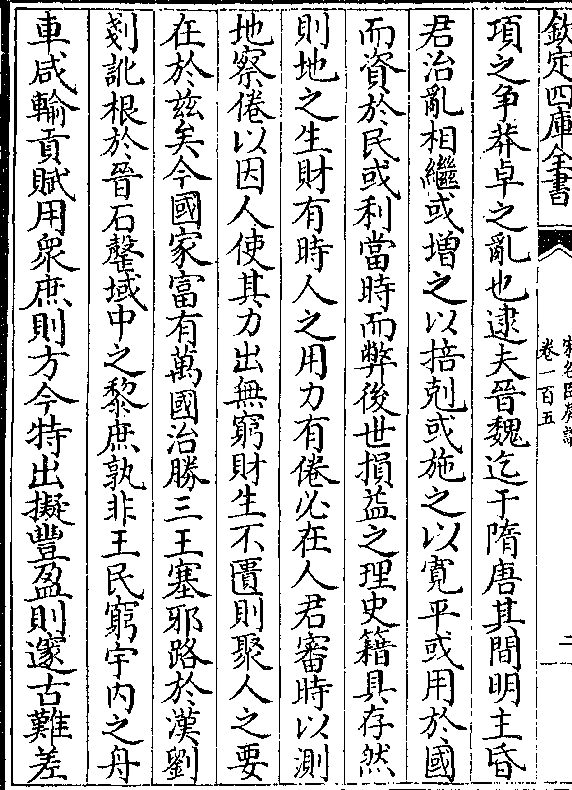 欽定四庫全書
卷一百五
二
項之争莽卓之亂也逮夫晉魏迄于隋唐其間明主昏
君治亂相繼或增之以掊剋或施之以寛平或用於國
而資於民或利當時而弊後世損益之理史籍具存然
則地之生財有時人之用力有倦必在人君審時以測
地察倦以因人使其力出無窮財生不匱則聚人之要
在於兹矣今國家富有萬國治勝三王塞邪路於漢劉
剗訛根於晉石罄域中之黎庶孰非王民窮宇内之舟
車咸輸貢賦用衆庶則方今特出擬豐盈則邃古難差